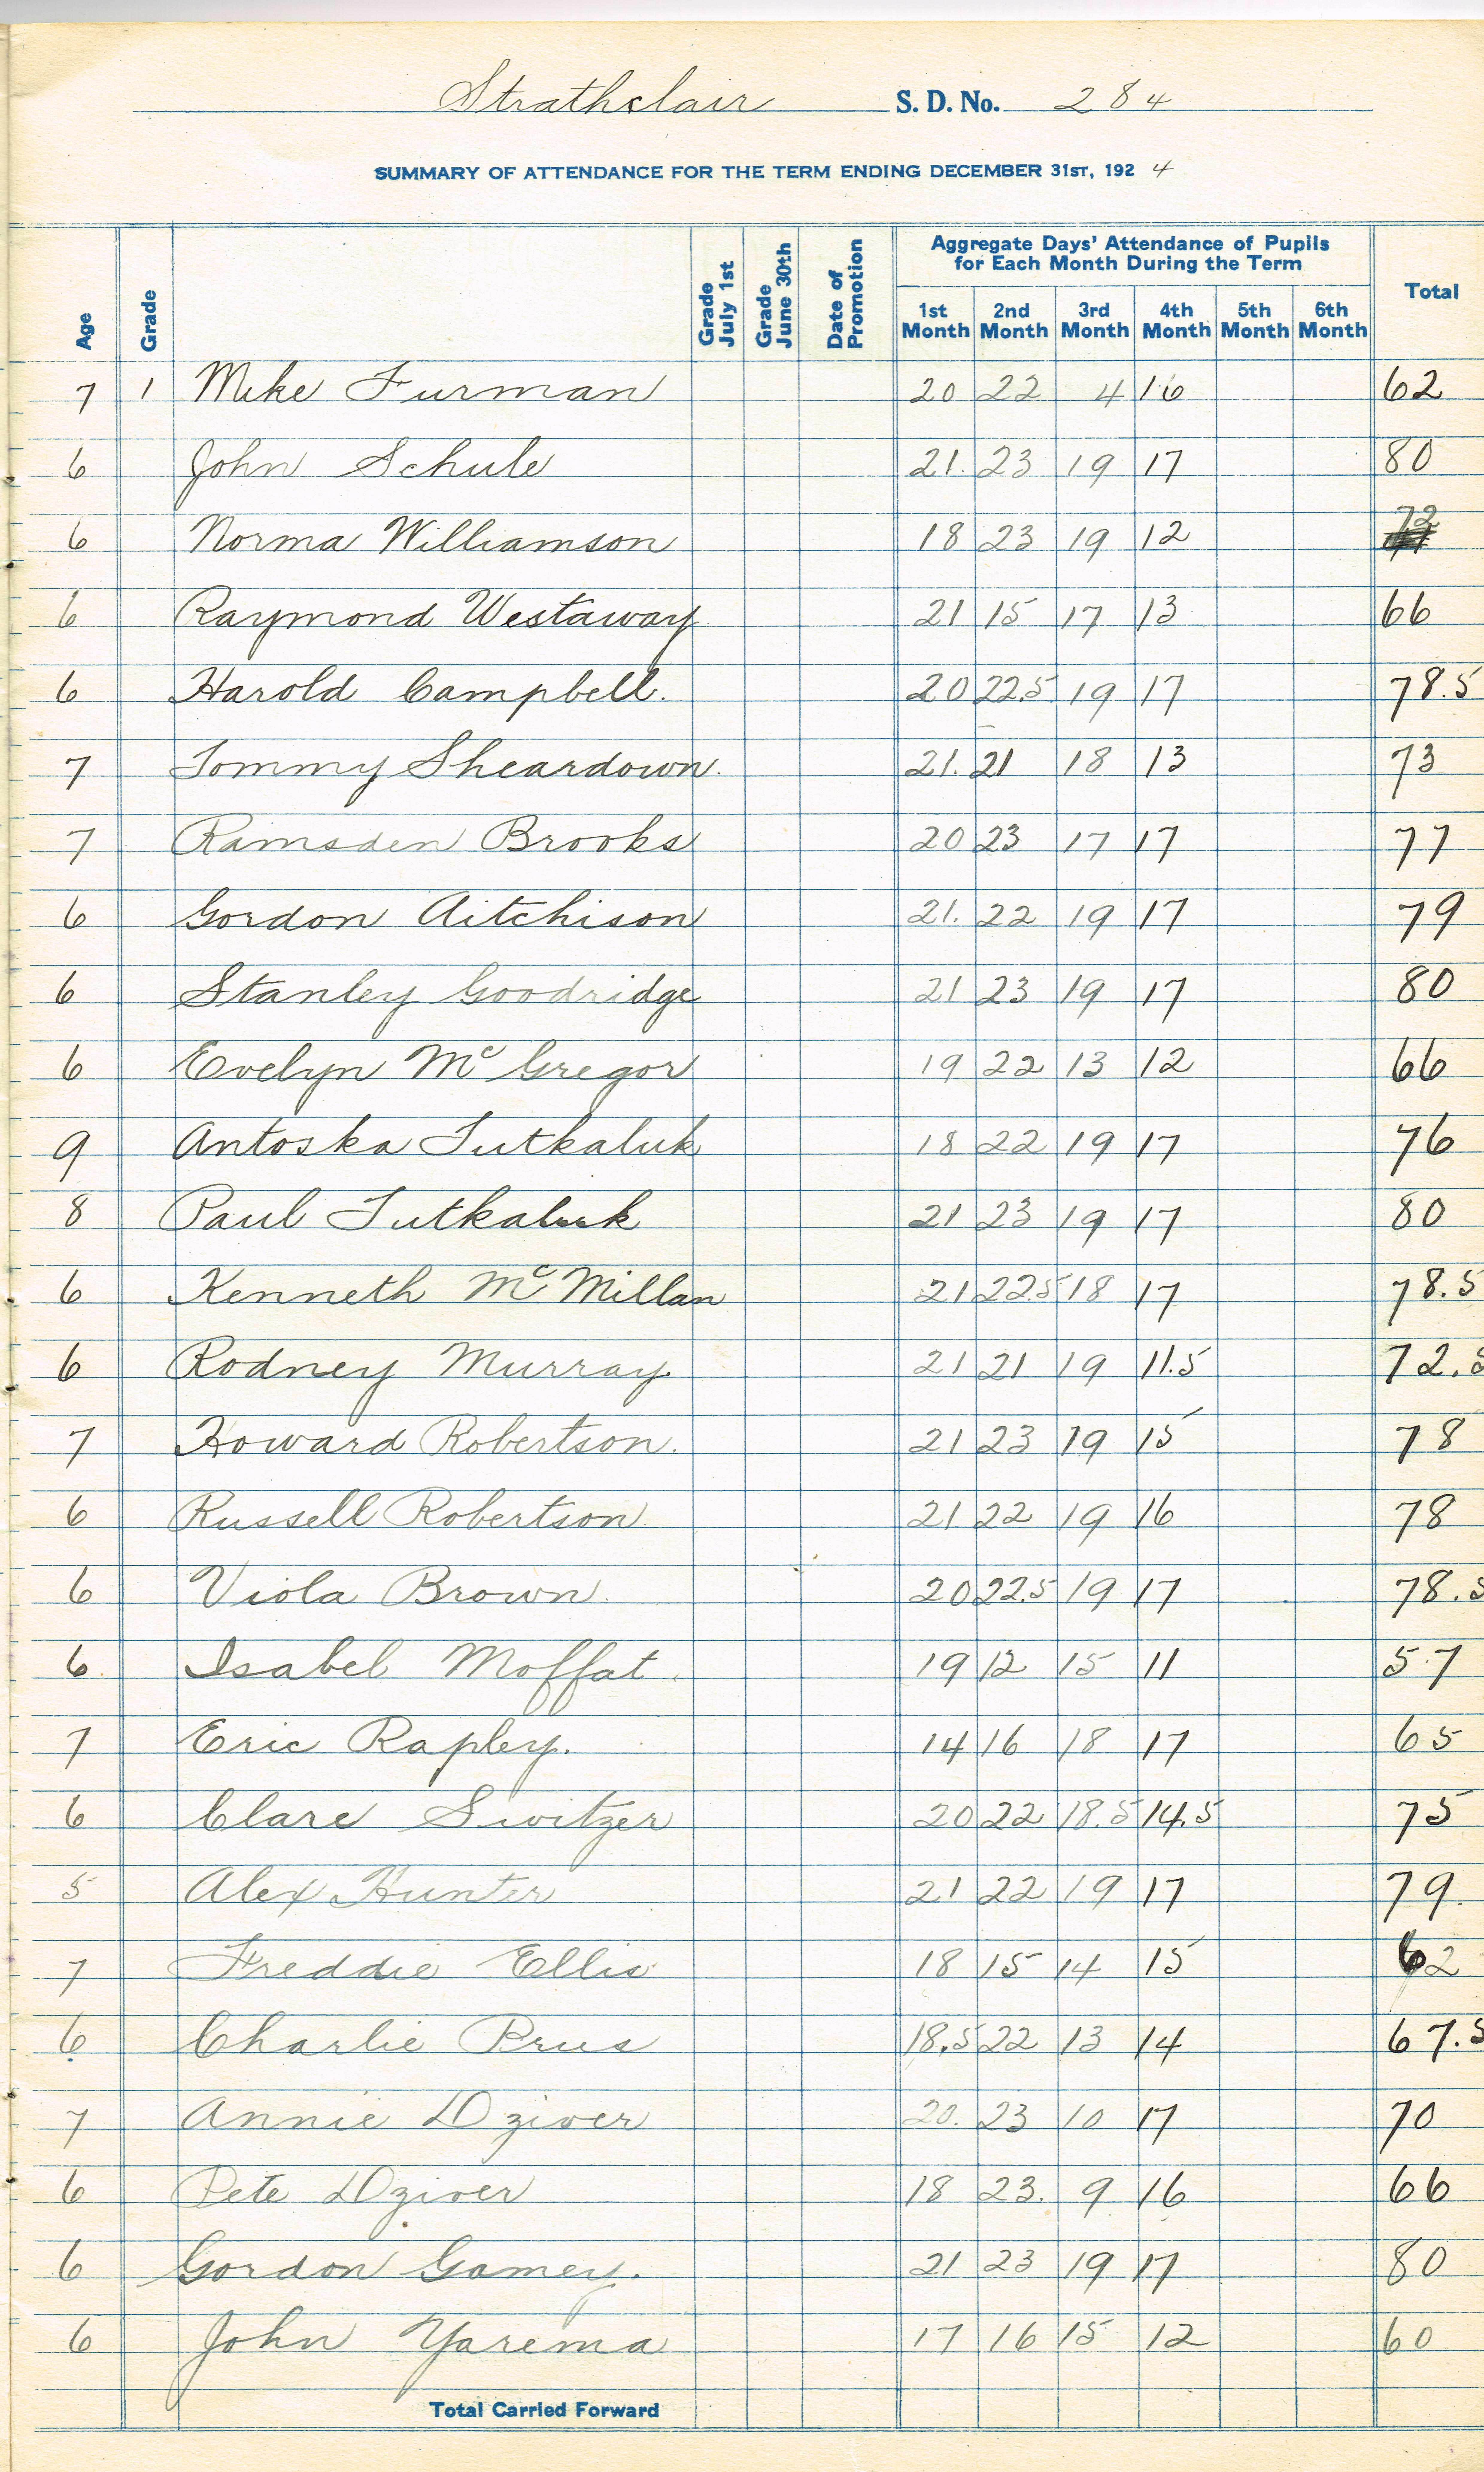 Strathclair S. D. No. 284
SUMMARY OF ATTENDANCE FOR THE TERM ENDING DECEMBER 31ST, 1924
Age Grade Grade July 1st Grade June 30th Date of Promotion Aggregate Days' Attendance of Pupils for Each Month During the Term Total
1st Month 2nd Month 3rd Month 4th Month 5th Month 6th Month
7 1 Mike Furman 20 22 4 16 62
6 John Schule 21. 23 19 17 80
6 Norma Williamson 18 23 19 12 72
6 Raymond Westaway 21 15 17 13 66
6 Harold Campbell. 20 22.5 19 17 78.5
7 Tommy Sheardown. 21. 21 18 13 73
7 Ramsden Brooks 20 23 17 17 77
6 Gordon Aitchison 21. 22 19 17 79
6 Stanley Goodridge 21 23 19 17 80
6 Evelyn McGregor 19 22 13 12 66
9 Antoska Tutkaluk 18 22 19 17 76
8 Paul Tutkaluk 21 23 19 17 80
6 Kenneth McMillan 21 22.5 18 17 78.5
6 Rodney Murray 21 21 19 11.5 72.5
7 Howard Robertson. 21 23 19 15 78
6 Russell Robertson. 21 22 19 16 78
6 Viola Brown. 20 22.5 19 17 78.5
6 Isabel Moffat. 19 12 15 11 57
7 Eric Rapley. 14 16 18 17 65
6 Clare Switzer 20 22 18.5 14.5 75
5 Alex Hunter 21 22 19 17 79.
7 Freddie Ellis 18 15 14 15 62
6 Charlie Prus 18.5 22 13 14 67.5
7 Annie Dziver 20. 23 10 17 70
6 Pete Dziver 18 23. 9 16 66
6 Gordon Gamey. 21 23 19 17 80
6 John Yarema 17 16 15 12 60
Total Carried Forward